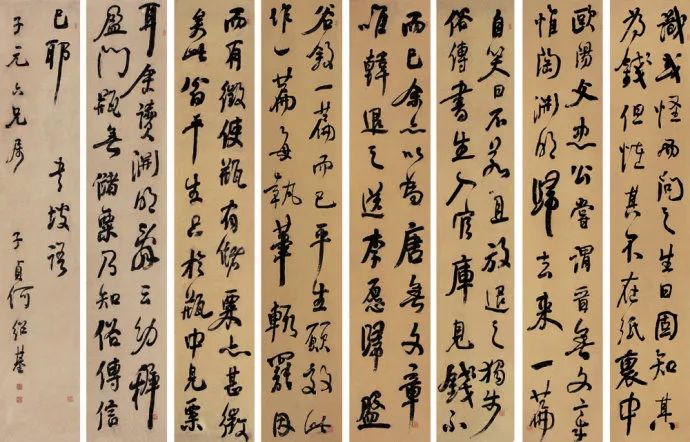 識或怪而問之生曰固知其
為錢但怪其不在紙裏中
歐陽文忠公嘗謂晉無文章
惟陶淵明歸去來一篇
自笑曰不若且放退之獨步
俗傳書生入官庫見錢不
而已余亦以為唐無文章
唯韓退之送李愿歸盤
谷敘一篇而已平生願效此
作一篇每執筆輒罷因
而有徵使瓶有儲粟亦甚微
矣此翁平生只於瓶中見粟
耳余讀淵明辭云幼稚
盈門瓶無儲粟乃知俗傳信
已耶 東坡語
子元六兄屬 子貞何紹基